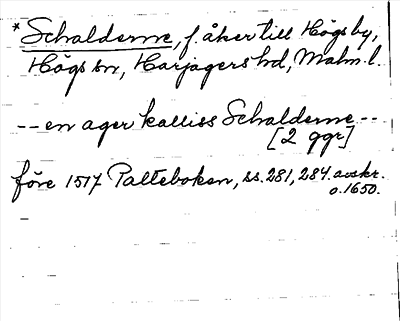 *Schalderne, f. åker till Högsby,
Högs sn, Harjagers hd, Malm. l.
-- en ager kalliss Schalderne --
[2 ggr]
före 1517 Palteboken, ss. 281, 284. avskr.
o. 1650.